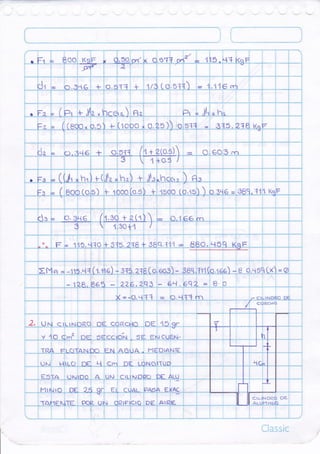 • F1 = 800 KgF/m³ × 0.50 m × 0.577 m² / 2 = 115.47 KgF
d1 = 0.346 + 0.577 + 1/3 (0.577) = 1.116 m
F2 =
F2 = ((800×0.5) + (1000×0.25)) 0.577 = 375.278 KgF
d2 = 0.346 + 0.577/3 (1+2(0.5)/1+0.5) = 0.603 m
F3 = (800(0.5) + 1000(0.5) + 1500 (0.15)) 0.346 = 389.711 KgF
d3 = 0.346/3 (1.30+2(1)/1.30+1) = 0.166 m
∴ F = 115.470 + 375.278 + 389.711 = 880.459 KgF
ΣMa = -115.47(1.116) - 375.278(0.603) - 389.711(0.166) - 8 0.459(X) = 0
- 128.865 - 226.293 - 64.692 = 8 0
X = -0.477 = 0.477 m
CILINDRO DE
CORCHO
2. UN CILINDRO DE CORCHO DE 15 gr
Y 10 Cm² DE SECCIÓN, SE ENCUEN-
TRA FLOTANDO EN AGUA, MEDIANTE
UN HILO DE 4 Cm DE LONGITUD
ESTA UNIDO A UN CILINDRO DE ALU
MINIO DE 25 gr EL CUAL PASA EXAC
TAMENTE POR UN ORIFICIO DE AIRE
h
4Cm
CILINDRO DE
ALUMINIO
Classic